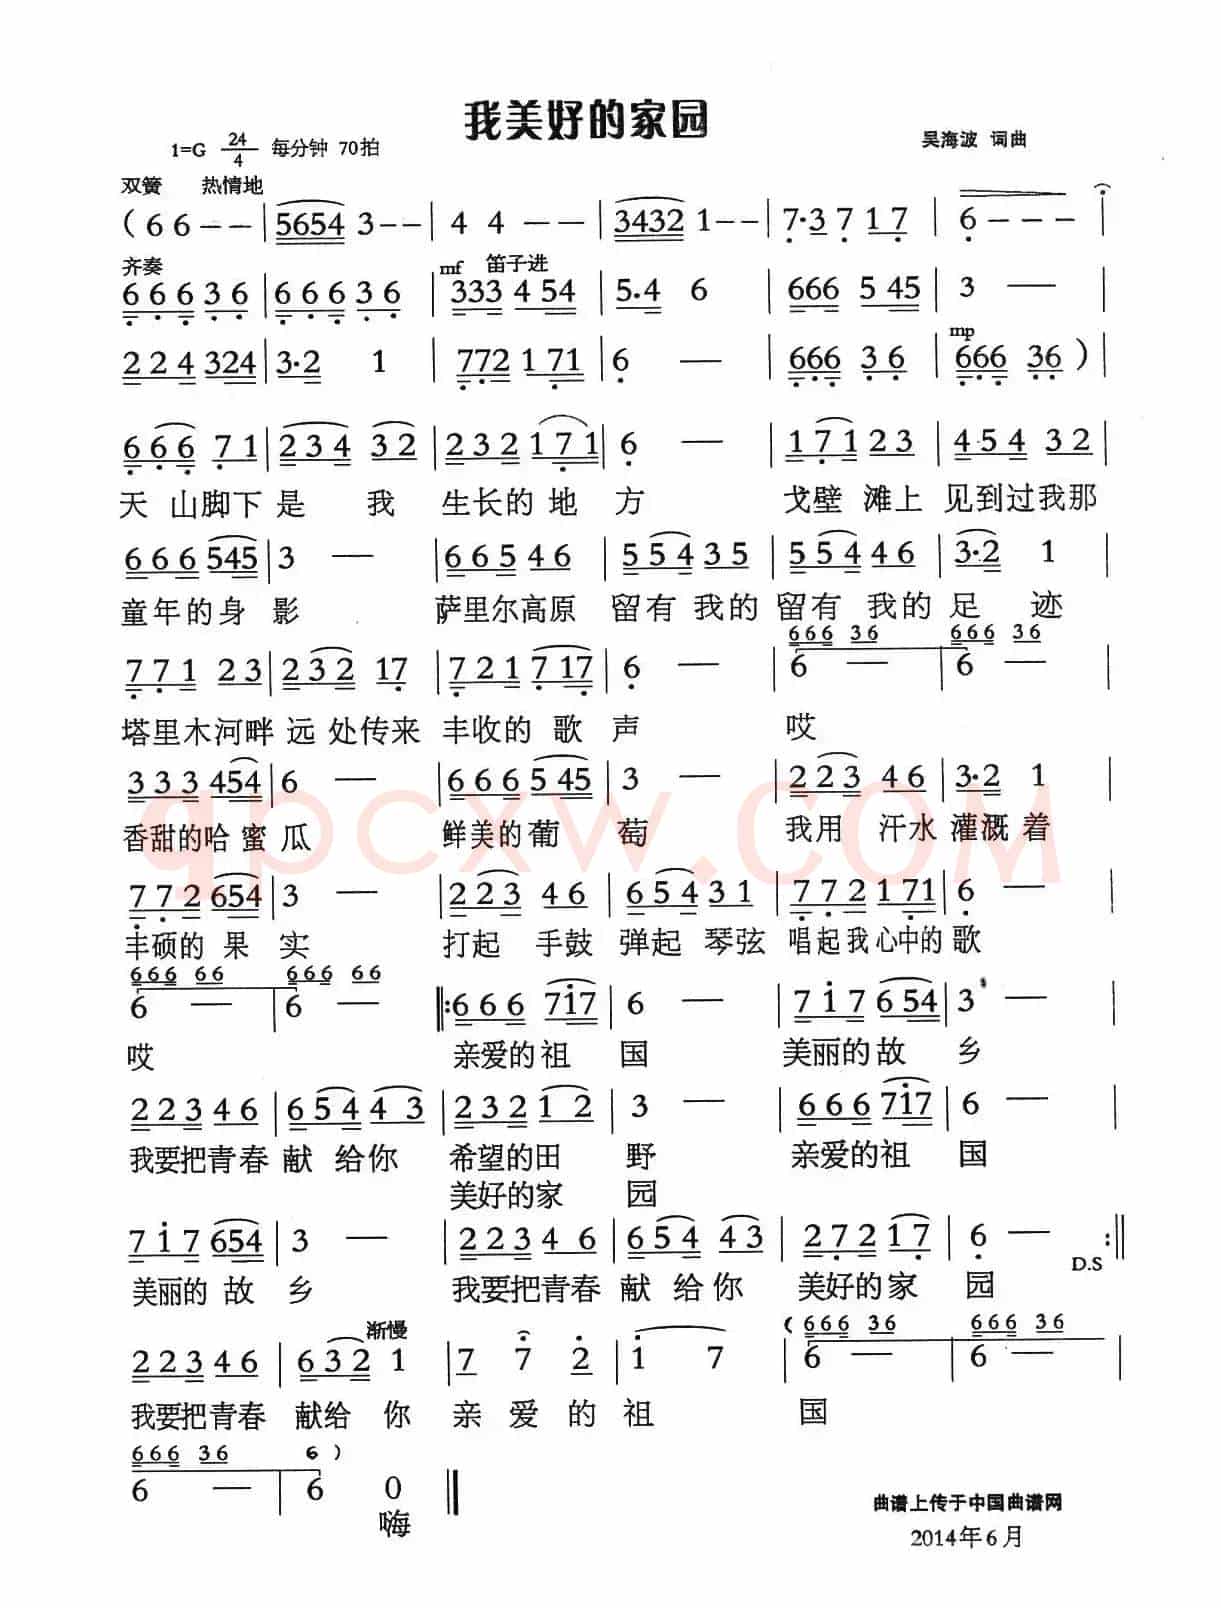 我美好的家园
1=G 24/4 每分钟 70拍
吴海波 词曲
双簧 热情地
( 6 6 - - | 5654 3 - - | 4 4 - - | 3432 1 - - | 7·3 7 1 7 | 6 - - - |
齐奏 mf 笛子进
6 6 6 3 6 | 6 6 6 3 6 | 333 4 54 | 5.4 6 | 666 5 45 | 3 — |
mp
2 2 4 324 | 3·2 1 | 772 1 71 | 6 — | 666 3 6 | 666 36 ) |
6 6 6 7 1 | 2 3 4 3 2 | 2 3 2 1 7 1 | 6 — | 1 7 1 2 3 | 4 5 4 3 2 |
天 山脚下 是 我 生长的 地 方 戈壁 滩上 见到过我那
6 6 6 545 | 3 — | 6 6 5 4 6 | 5 5 4 3 5 | 5 5 4 4 6 | 3·2 1 |
童年的身 影 萨里尔高原 留有 我的 留有 我的 足 迹
666 36 666 36
7 7 1 2 3 | 2 3 2 17 | 7 2 1 7 17 | 6 — | 6 — | 6 — |
塔里木河畔 远 处传来 丰收的 歌 声 哎
3 3 3 454 | 6 — | 6 6 6 5 45 | 3 — | 2 2 3 4 6 | 3·2 1 |
香甜的哈 蜜 瓜 鲜美的葡 萄 我用 汗水 灌溉 着
7 7 2 654 | 3 — | 2 2 3 4 6 | 6 5 4 3 1 | 7 7 2 1 71 | 6 — |
丰硕的 果 实 打起 手鼓 弹起 琴弦 唱起我心中的 歌
666 66 666 66
6 — | 6 — ‖: 6 6 6 717 | 6 — | 7 1 7 6 54 | 3 — |
哎 亲爱的祖 国 美丽的故 乡
2 2 3 4 6 | 6 5 4 4 3 | 2 3 2 1 2 | 3 — | 6 6 6 717 | 6 — |
我要把青春 献 给你 希望的田 野 亲爱的祖 国
美好的家 园
7 1 7 654 | 3 — | 2 2 3 4 6 | 6 5 4 43 | 2 7 2 1 7 | 6 — :‖
D.S
美丽的 故 乡 我要把青春 献 给你 美好的家 园
渐慢 ( 666 36 666 36
2 2 3 4 6 | 6 3 2 1 | 7 7 2 | 1 7 | 6 — | 6 — |
我要把青春 献给 你 亲 爱 的 祖 国
666 36 6 )
6 — | 6 0 ‖
嗨
曲谱上传于中国曲谱网
2014年6月
qpcxw.COM